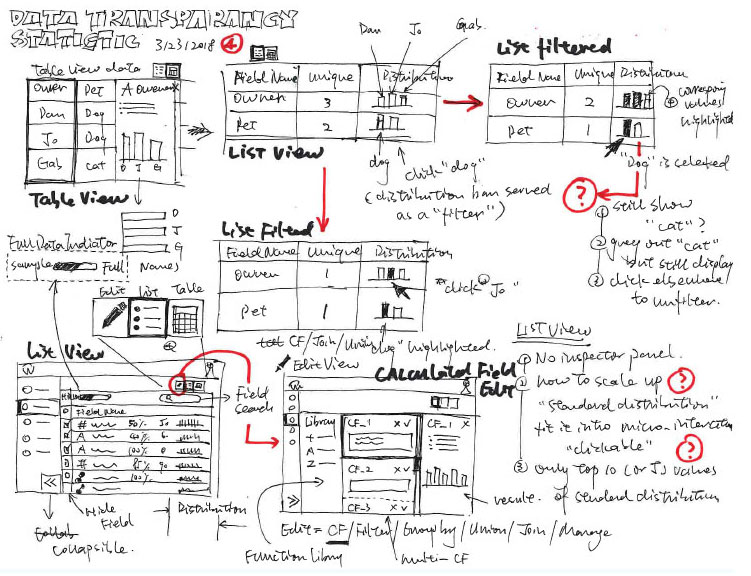 DATA TRANSPARANCY
STATISTIC 3/23/2018 4
Table View data
Owner Pet A Owner x
Dan Dog
Jo Dog
Gab Cat
D J G
Table View
Dan Jo Gab
Field Name Unique Distribution
Owner 3
Pet 2
LIST View
dog
click "dog"
(distribution bar served
as a "filter")
List filtered
Field Name Unique Distribution
Owner 2
Pet 1
corresponding
values
highlighted
"Dog" is selected
?
1 still show
"cat"?
2 grey out "cat"
but still display
3 click elsewhere
to unfilter.
D
J
G
Names
Full Data Indiator
Sample Full
List Filtered
Field Name Unique Distribution
Owner 1
Pet 1
"click" Jo"
CF/Join/Union
"dog" highlighted.
Edit List Table
List View
W
Field Name
# 50% Jo
A 40% 6
A 100% 0
# 85% 90
100%
<<
Field
search
Hide
Field
Distribution
Collapsible.
Edit View
CALCULATED Field
Edit
W
Library
+
A
Z
>>
CF_1 x v
CF_2 x v
CF_3 x v
CF_1 x
result of standard distribution
Edit = CF/Filter/Group by/Union/Join/Manage
Function Library
multi-CF
LIST View
1 No inspector panel.
2 how to scale up ?
"standard distribution"
fit it into micro-interaction
"clickable" ?
3 only top 10 (or 15) values